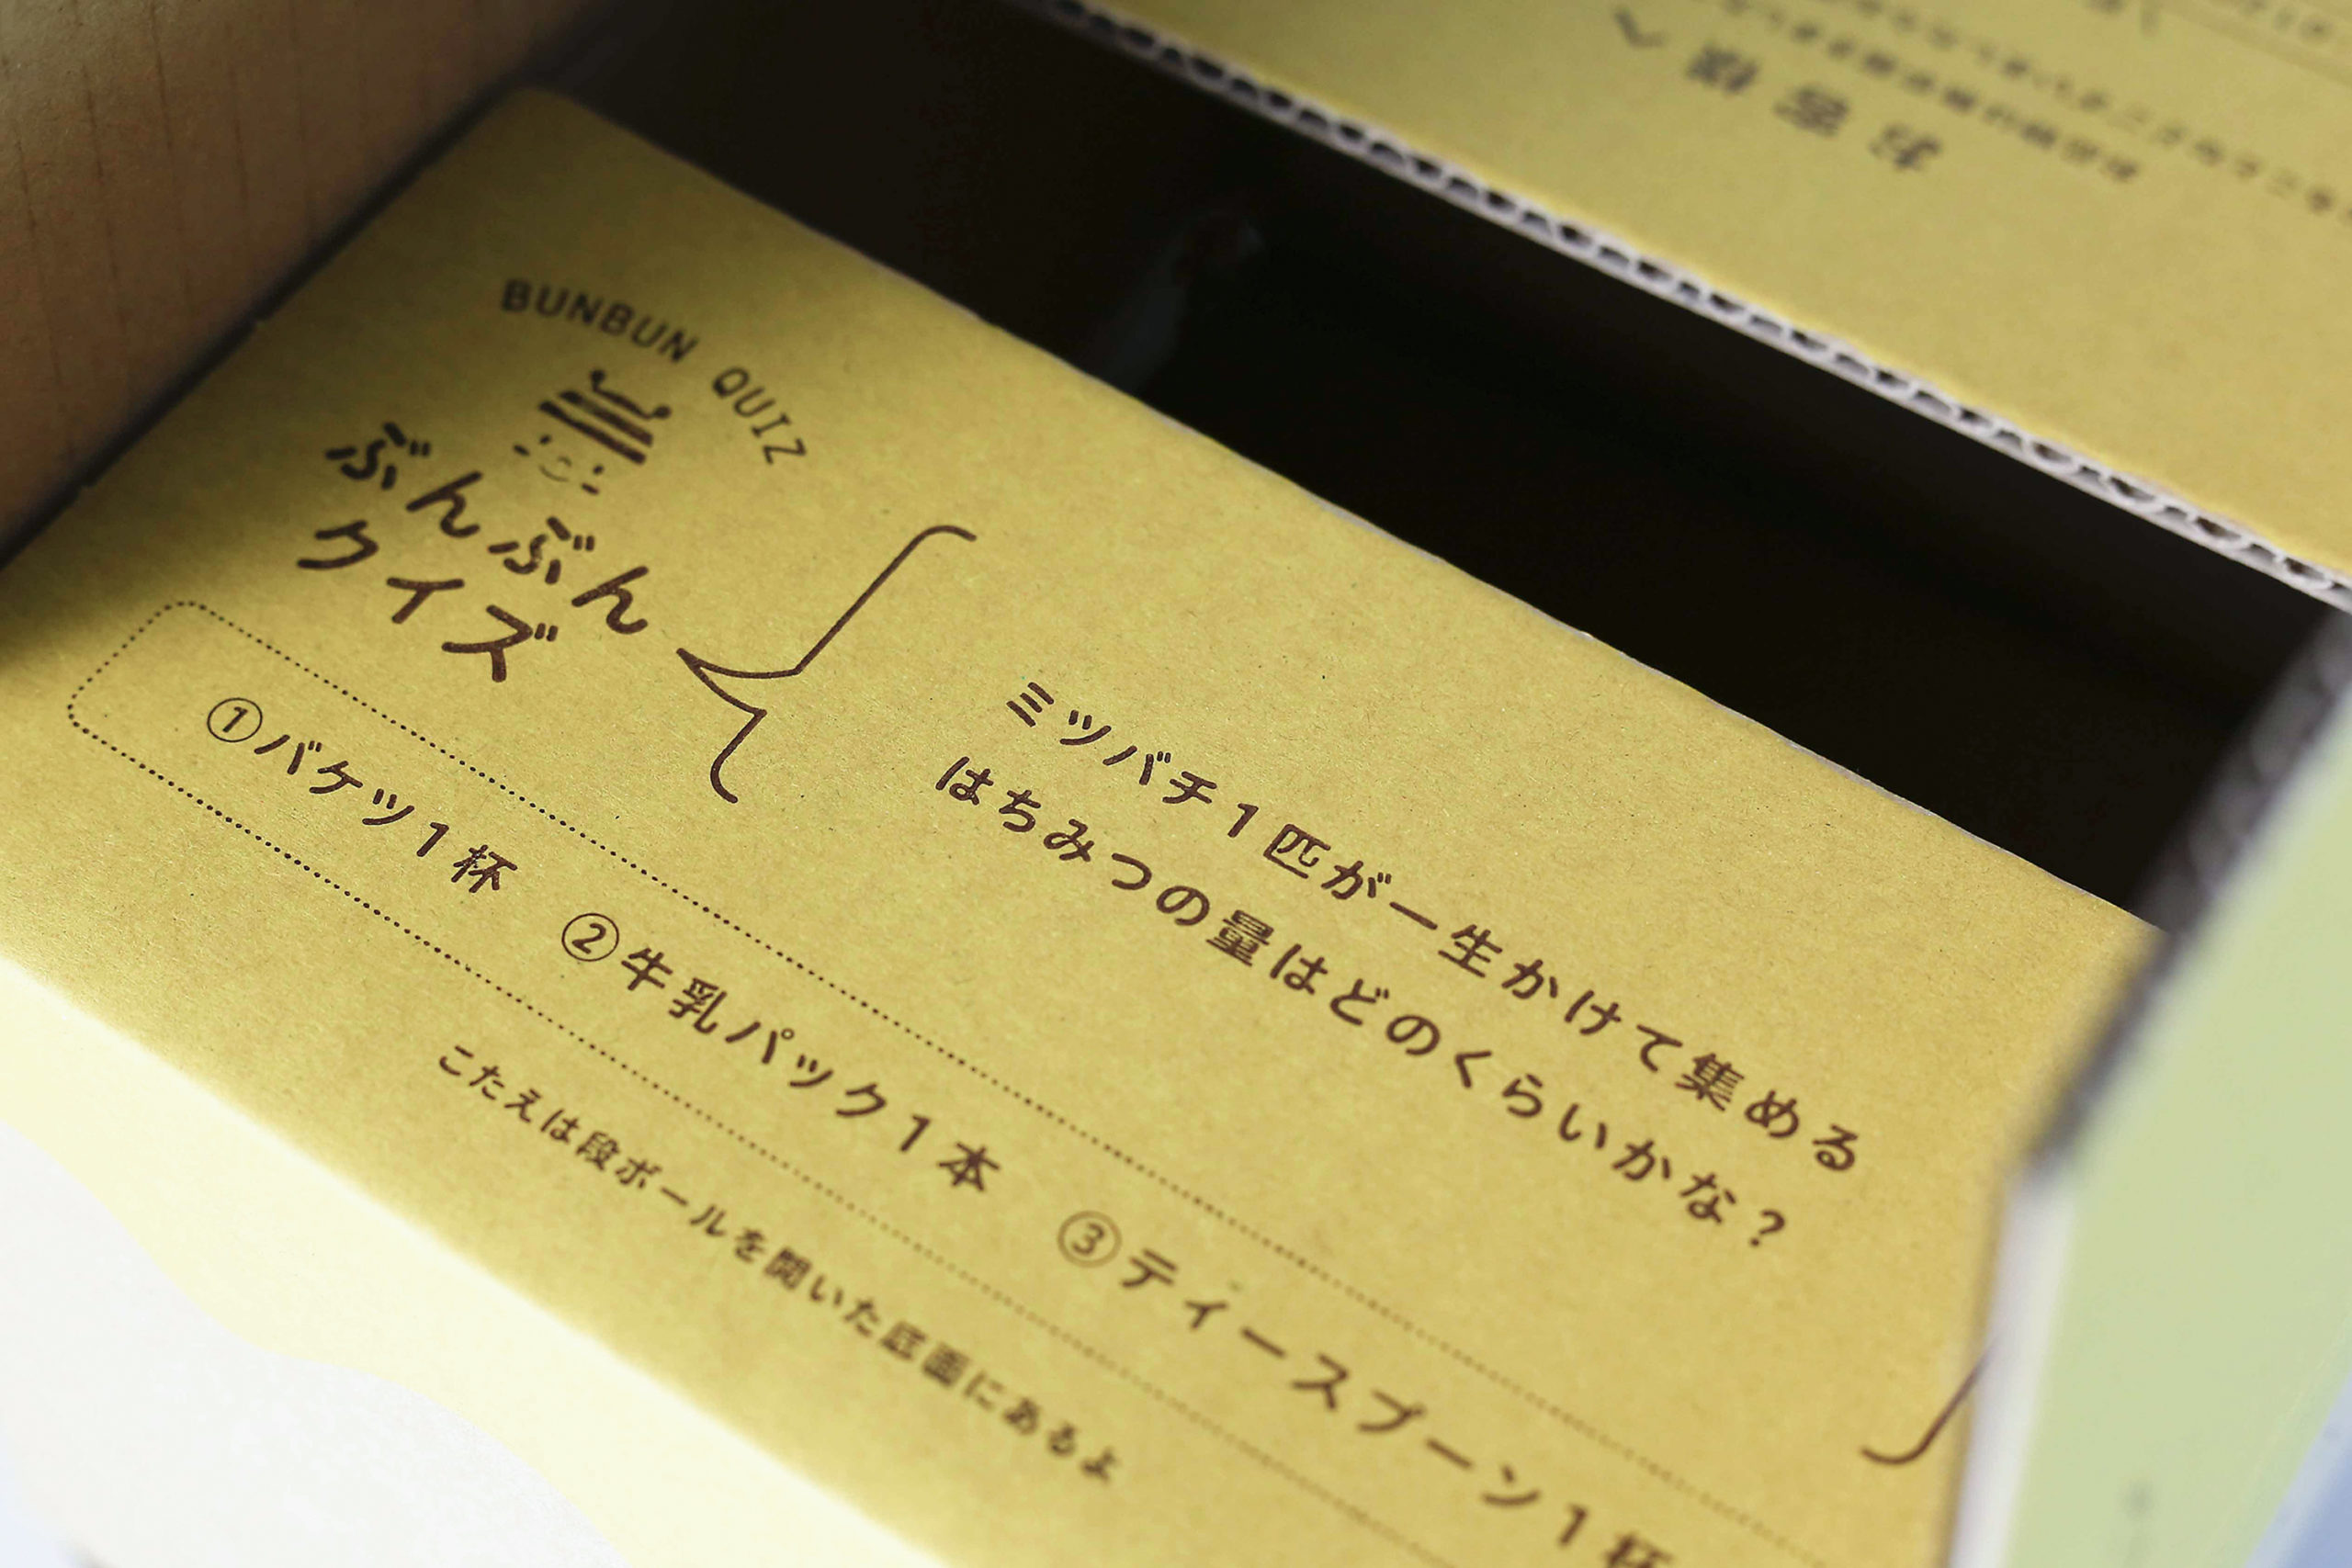 BUNBUN QUIZ
ぶんぶん
クイズ
ミツバチ1匹が一生かけて集める
はちみつの量はどのくらいかな?
①バケツ1杯 ②牛乳パック1本 ③ティースプーン1杯
こたえは段ボールを開いた底面にあるよ
お客様へ